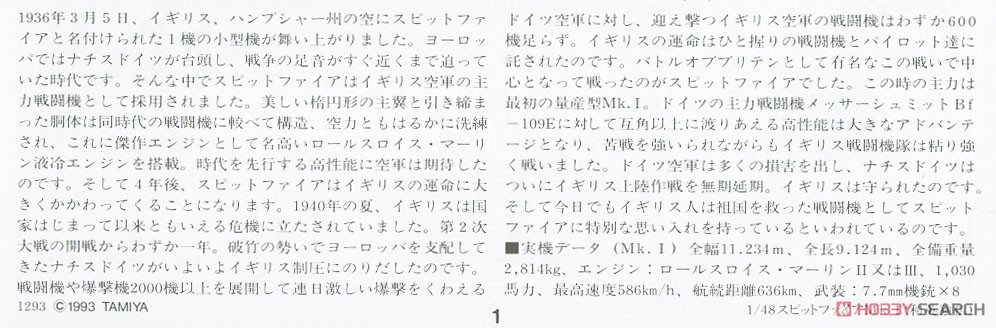 1936年3月5日、イギリス、ハンプシャー州の空にスピットファ
イアと名付けられた1機の小型機が舞い上がりました。ヨーロッ
パではナチスドイツが台頭し、戦争の足音がすぐ近くまで迫って
いた時代です。そんな中でスピットファイアはイギリス空軍の主
力戦闘機として採用されました。美しい楕円形の主翼と引き締ま
った胴体は同時代の戦闘機に較べて構造、空力ともはるかに洗練
され、これに傑作エンジンとして名高いロールスロイス・マーリ
ン液冷エンジンを搭載。時代を先行する高性能に空軍は期待した
のです。そして4年後、スピットファイアはイギリスの運命に大
きくかかわってくることになります。1940年の夏、イギリスは国
家はじまって以来ともいえる危機に立たされていました。第2次
大戦の開戦からわずか一年。破竹の勢いでヨーロッパを支配して
きたナチスドイツがいよいよイギリス制圧にのりだしたのです。
戦闘機や爆撃機2000機以上を展開して連日激しい爆撃をくわえる
1293 ©1993 TAMIYA
ドイツ空軍に対し、迎え撃つイギリス空軍の戦闘機はわずか600
機足らず。イギリスの運命はひと握りの戦闘機とパイロット達に
託されたのです。バトルオブブリテンとして有名なこの戦いで中
心となって戦ったのがスピットファイアでした。この時の主力は
最初の量産型Mk.I。ドイツの主力戦闘機メッサーシュミットBf
-109Eに対して互角以上に渡りあえる高性能は大きなアドバンテ
ージとなり、苦戦を強いられながらもイギリス戦闘機隊は粘り強
く戦いました。ドイツ空軍は多くの損害を出し、ナチスドイツは
ついにイギリス上陸作戦を無期延期。イギリスは守られたのです。
そして今日でもイギリス人は祖国を救った戦闘機としてスピット
ファイアに特別な思い入れを持っているといわれているのです。
■実機データ(Mk.I)全幅11.234m、全長9.124m、全備重量
2,814kg、エンジン:ロールスロイス・マーリンII又はIII、1,030
馬力、最高速度586km/h、航続距離636km、武装:7.7mm機銃×8
1/48スピットファ
HOBBY SEARCH
1